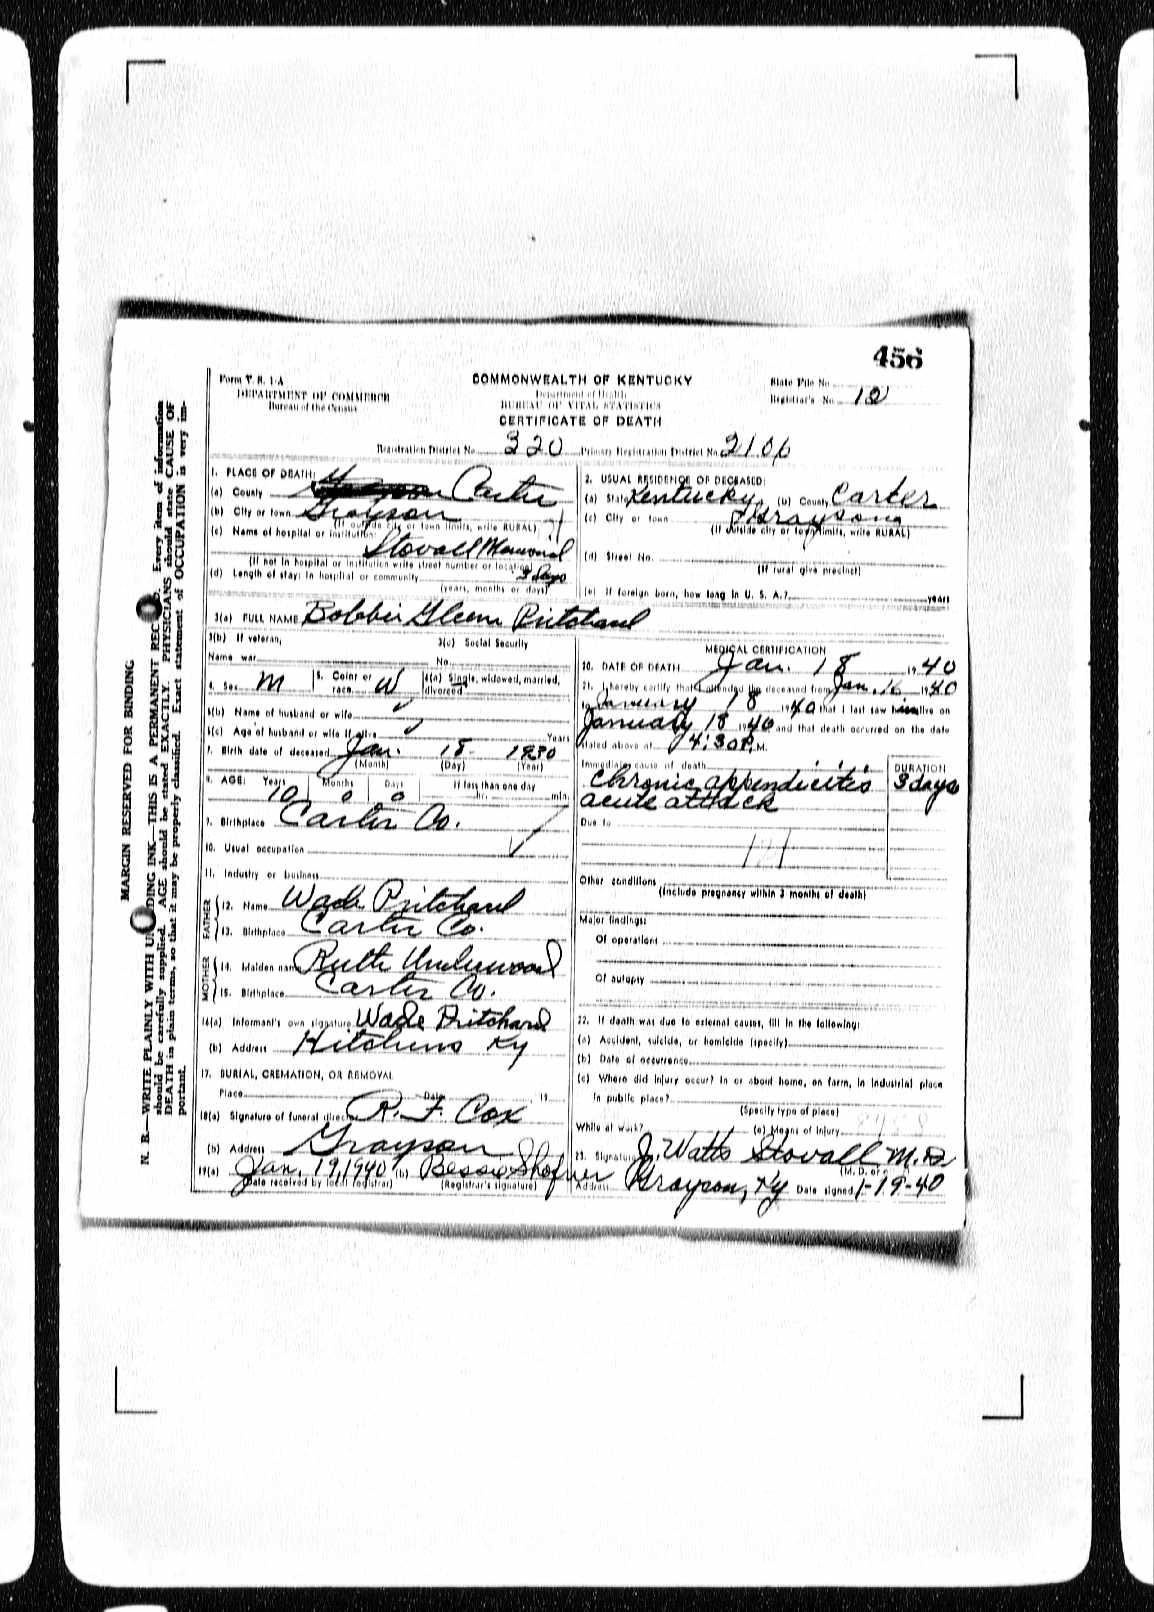 456
Form V. S. 1-A
DEPARTMENT OF COMMERCE
Bureau of the Census
COMMONWEALTH OF KENTUCKY
Department of Health
BUREAU OF VITAL STATISTICS
CERTIFICATE OF DEATH
State File No.
Registrar's No. 12
Registration District No. 320 Primary Registration District No. 2106
MARGIN RESERVED FOR BINDING
N. B.—WRITE PLAINLY WITH UNFADING INK—THIS IS A PERMANENT RECORD. Every item of information
should be carefully supplied. AGE should be stated EXACTLY. PHYSICIANS should state CAUSE OF
DEATH in plain terms, so that it may be properly classified. Exact statement of OCCUPATION is very im-
portant.
1. PLACE OF DEATH:
(a) County Carter
(b) City or town Grayson
(If outside city or town limits, write RURAL)
(c) Name of hospital or institution:
Stovall Memorial
(If not in hospital or institution write street number or location)
(d) Length of stay: In hospital or community 3 days
(years, months or days)
2. USUAL RESIDENCE OF DECEASED:
(a) State Kentucky (b) County Carter
(c) City or town Grayson
(If outside city or town limits, write RURAL)
(d) Street No.
(If rural give precinct)
(e) If foreign born, how long in U. S. A.? years
3(a) FULL NAME Bobbie Gleen Pritchard
3(b) If veteran,
Name war
3(c) Social Security
No.
4. Sex M 5. Color or race W 6(a) Single, widowed, married, divorced
6(b) Name of husband or wife
6(c) Age of husband or wife if alive Years
7. Birth date of deceased Jan. 18 1930
(Month) (Day) (Year)
8. AGE: Years Months Days If less than one day
10 0 0 hr. min.
9. Birthplace Carter Co.
10. Usual occupation
11. Industry or business
FATHER
12. Name Wade Pritchard
13. Birthplace Carter Co.
MOTHER
14. Maiden name Ruth Underwood
15. Birthplace Carter Co.
16(a) Informant's own signature Wade Pritchard
(b) Address Hitchins Ky
17. BURIAL, CREMATION, OR REMOVAL
Place Date , 19
18(a) Signature of funeral director R. F. Cox
(b) Address Grayson
19(a) Jan. 19, 1940 (b) Bessie Shofner
(Date received by local registrar) (Registrar's signature)
MEDICAL CERTIFICATION
20. DATE OF DEATH Jan. 18 1940
21. I hereby certify that I attended the deceased from Jan. 16 1940
to January 18 1940 that I last saw him alive on
January 18 1940 and that death occurred on the date
stated above at 4:30 P. M.
Immediate cause of death
DURATION
Chronic appendicitis 3 days
acute attack
Due to
121
Other conditions
(Include pregnancy within 3 months of death)
Major findings:
Of operations
Of autopsy
22. If death was due to external causes, fill in the following:
(a) Accident, suicide, or homicide (specify)
(b) Date of occurrence
(c) Where did injury occur? In or about home, on farm, in industrial place
in public place?
(Specify type of place)
While at work? (e) Means of injury
23. Signature J. Watts Stovall M. D.
(M. D. or
Address Grayson, Ky Date signed 1-19-40